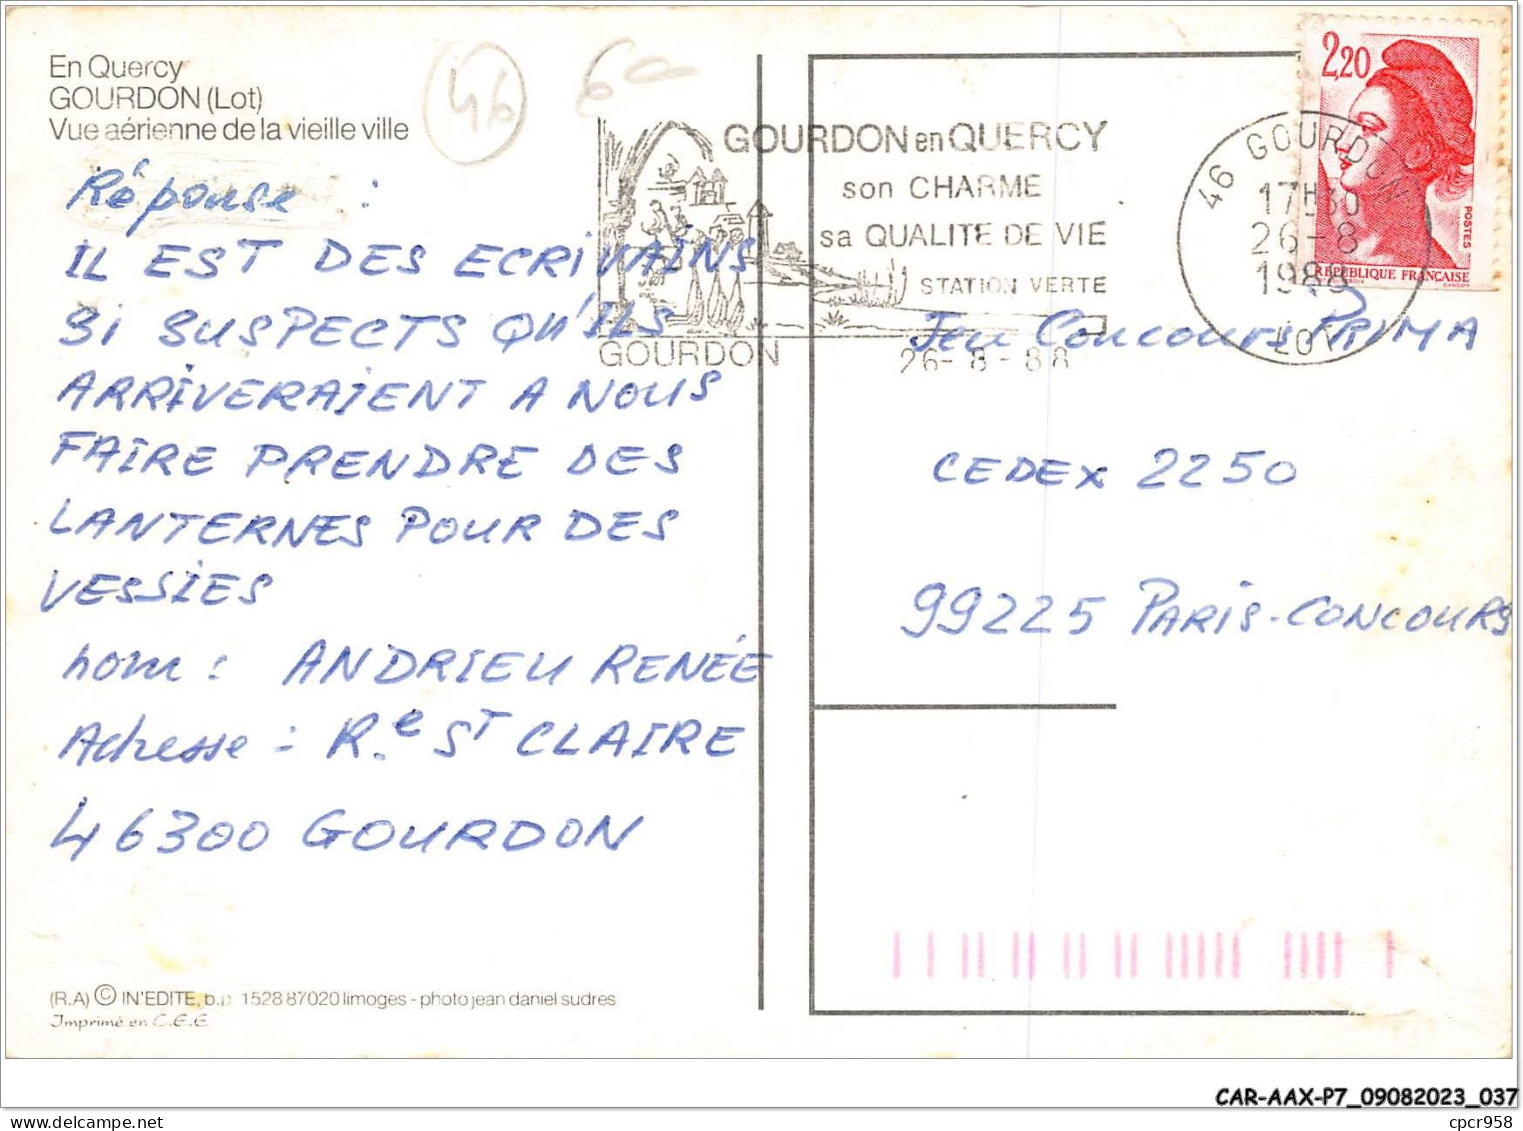 En Quercy
GOURDON (Lot)
Vue aérienne de la vieille ville
46
Réponse :
IL EST DES ECRIVAINS
SI SUSPECTS QU'ILS
ARRIVERAIENT A NOUS
FAIRE PRENDRE DES
LANTERNES POUR DES
VESSIES
nom : ANDRIEU RENÉE
Adresse : R.e ST CLAIRE
46300 GOURDON
(R.A) © IN'EDITE, b.p. 1528 87020 limoges - photo jean daniel sudres
Imprimé en C.E.E
GOURDON en QUERCY
son CHARME
sa QUALITE DE VIE
STATION VERTE
GOURDON
26-8-88
46 GOURDON
17H30
26-8
1988
LOT
2,20
POSTES
REPUBLIQUE FRANÇAISE
Jeu Concours PRIMA
CEDEX 2250
99225 PARIS-CONCOURS
CAR-AAX-P7_09082023_037
cpcr958